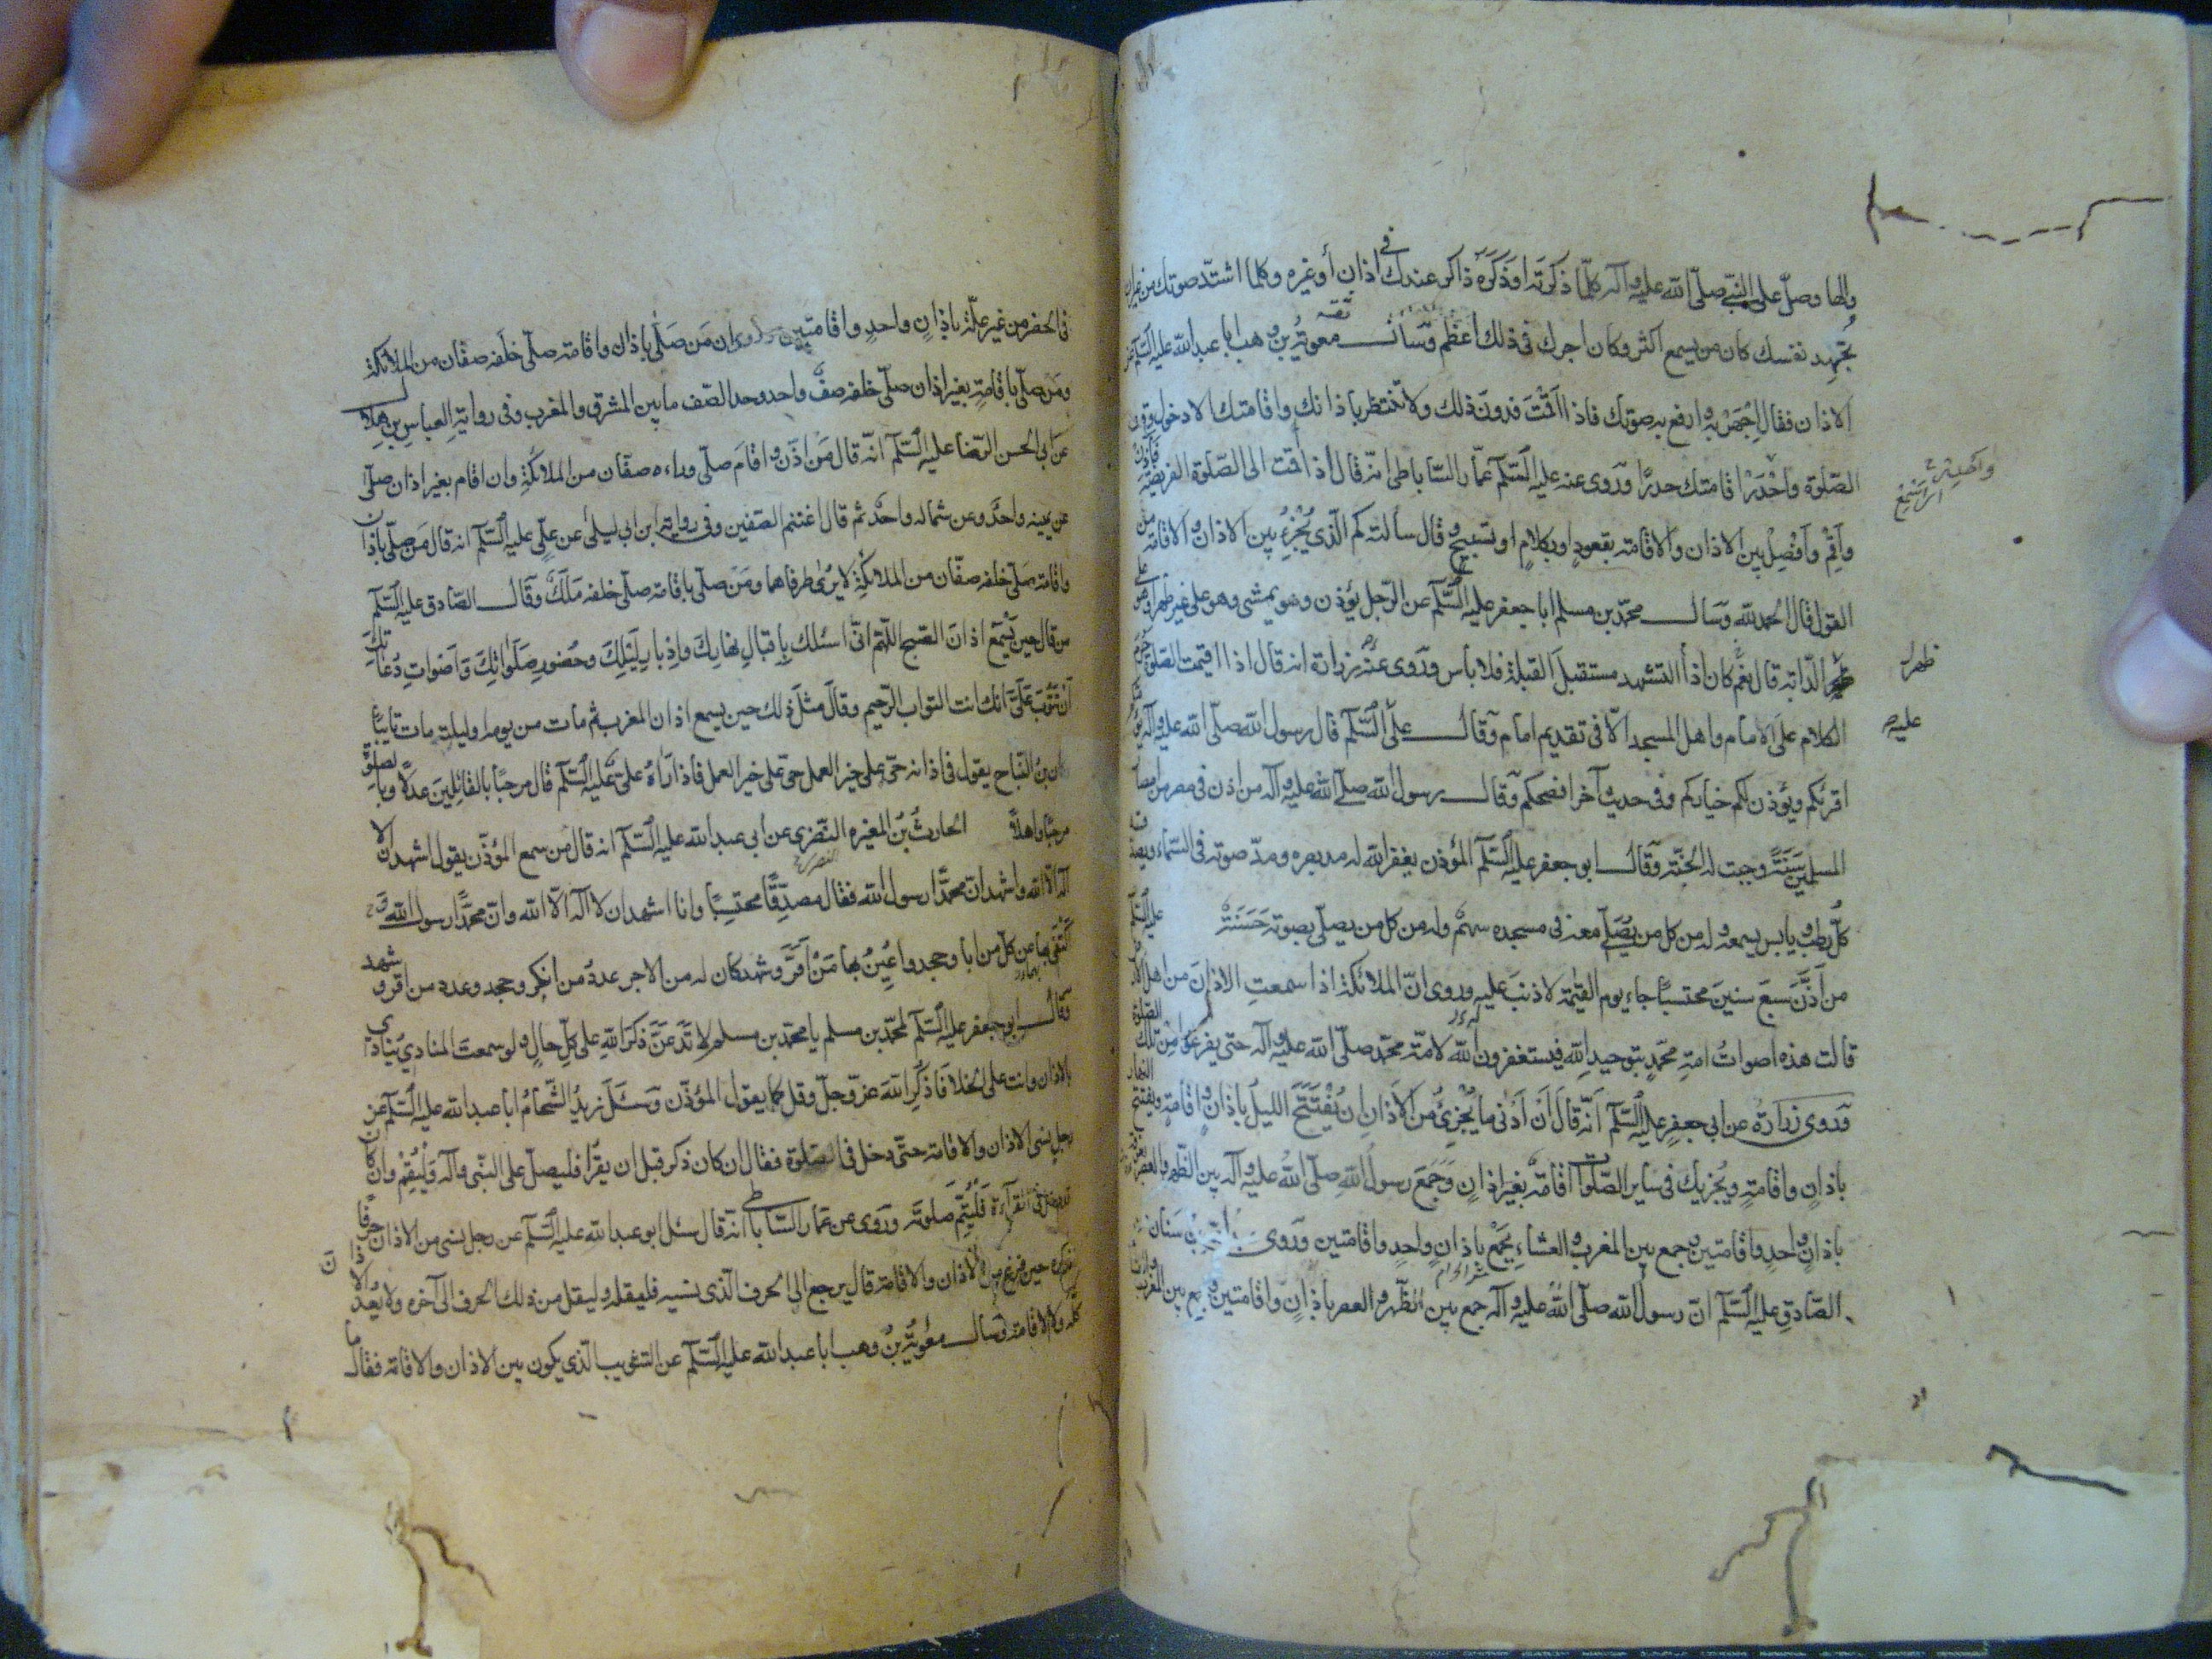 والها وصلّ على النبيّ صلّى الله عليه وآله كلّما ذكرته او ذكره ذاكر عندك في اذان أو غيره وكلما اشتدّ صوتك من غير ان
تجهد نفسك كان من يسمع اكثر وكان اجرك في ذلك اعظم وسأل معوية بن وهب ابا عبد الله عليه السّلم عن
الاذان فقال اجهر به وارفع به صوتك فاذا اقمت فدون ذلك ولا تنتظر باذانك واقامتك الا دخول وقت
الصّلوة واحدر اقامتك حدرًا وروى عنه عليه السّلم عمّار السّاباطي انّه قال اذا قمت الى الصّلوة الفريضة فاذّن
واقم وافصل بين الاذان والاقامة بقعود او بكلام او تسبيح وقال سألته كم الّذي يجزئ بين الاذان والاقامة من
القول قال الحمد لله وسال محمّد بن مسلم ابا جعفر عليه السّلم عن الرّجل يؤذن وهو يمشي وهو على غير طهر او هو على
ظهر الدّابة قال نعم كان اذا التشهد مستقبل القبلة فلا باس وروى عنه زرارة انه قال اذا اقيمت الصلوة حرم
الكلام على الامام واهل المسجد الّا في تقديم امام وقال علي السّلم قال رسول الله صلّى الله عليه وآله يؤمكم
اقرئكم ويؤذن لكم خياركم وفي حديث آخر افصحكم وقال رسول الله صلّى الله عليه وآله من اذن في مصر من امصار
المسلمين سنة وجبت له الجنّة وقال ابو جعفر عليه السّلم المؤذن يغفر الله له مد بصره ومدّ صوته في السّماء ويصدقه
كلّ رطب ويابس يسمعه وله من كل من يصلّي معه في مسجده سهم وله من كل من يصلّي بصوته حسنة
من اذّن سبع سنين محتسبًا جاء يوم القيمة لا ذنب عليه وروى انّ الملائكة اذا سمعت الاذان من اهل الارض
قالت هذه اصوات امة محمّد بتوحيد الله فيستغفرون الله لامّة محمّد صلّى الله عليه وآله حتى يفرغوا من تلك الصّلوة
وروى زرارة عن ابي جعفر عليه السّلم انّه قال ان ادنى ما يجزئ من الاذان ان يفتتح الليل باذان واقامة ويفتتح النهار
باذان واقامة ويجزيك في ساير الصّلوات اقامة بغير اذان وجمع رسول الله صلّى الله عليه وآله بين الظّهر والعصر بعرفة
باذان واحد واقامتين وجمع بين المغرب والعشاء بجمع باذان واحد واقامتين وروى سنان عن
الصّادق عليه السّلم انّ رسول الله صلّى الله عليه وآله جمع بين الظّهر والعصر باذان واقامتين وجمع بين المغرب
ظهر
عليه
في الحضر من غير علّة باذان واحد واقامتين وروى ان من صلّى باذان واقامة صلّى خلفه صفّان من الملائكة
ومن صلّى باقامة بغير اذان صلّى خلفه صفّ واحد وحد الصّف ما بين المشرق والمغرب وفي رواية العباس بن هلال
عن ابي الحسن الرّضا عليه السّلم انّه قال من اذّن واقام صلّى وراءه صفّان من الملائكة وان اقام بغير اذان صلّى
عن يمينه واحد وعن شماله واحد ثم قال اغتنم الصّفين وفي رواية ابن ابي ليلى عن عليّ عليه السّلم انه قال من صلّى باذان
واقامة صلّى خلفه صفّان من الملائكة لا يرى طرفاهما ومن صلّى باقامة صلّى خلفه ملك وقال الصّادق عليه السّلم
من قال حين يسمع اذان الصّبح اللّهمّ انّي اسئلك باقبال نهارك وادبار ليلك وحضور صلواتك واصوات دعاتك
ان تتوب عليّ انك انت التواب الرّحيم وقال مثل ذلك حين يسمع اذان المغرب ثم مات من يومه او ليلته مات تايبًا
بن النّباح يقول في اذانه حيّ على خير العمل حيّ على خير العمل فاذا رآه علي عليه السّلم قال مرحبًا بالقائلين عدلا وبالصلوة
مرحبًا واهلًا الحارث بن المغيرة النّضري عن ابي عبد الله عليه السّلم انه قال من سمع المؤذّن يقول اشهد ان لا
اله الّا الله واشهد ان محمّدًا رسول الله فقال مصدّقًا محتسبًا وانا اشهد ان لا اله الّا الله وانّ محمّدًا رسول الله
اكتفى بها عن كلّ من ابا وجحد واعين بها من اقرّ وشهد كان له من الاجر عدد من انكر وجحد وعدد من اقر وشهد
وقال ابو جعفر عليه السّلم لمحمّد بن مسلم يا محمّد بن مسلم لا تدعنّ ذكر الله على كلّ حال ولو سمعت المنادي ينادي
بالاذان وانت على الخلا فاذكر الله عزّ وجلّ وقل كما يقول المؤذّن وسئل زيد الشّحام ابا عبد الله عليه السّلم عن
رجل نسى الاذان والاقامة حتّى دخل في الصّلوة فقال ان كان ذكر قبل ان يقرا فليصلّ على النّبي وآله وليقم وان كان
قد دخل في القراءة فليتمّ صلوته وروى عن عمّار السّاباطي انّه قال سئل ابو عبد الله عليه السّلم عن رجل نسى من الاذان حرفًا
فذكره حين فرغ من الاذان والاقامة قال يرجع الى الحرف الّذي نسيه فليقله وليقل من ذلك الحرف الى آخره ولا يعد الاذان
كله ولا الاقامة وسال معوية بن وهب ابا عبد الله عليه السّلم عن التثويب الّذي يكون بين الاذان والاقامة فقال ما